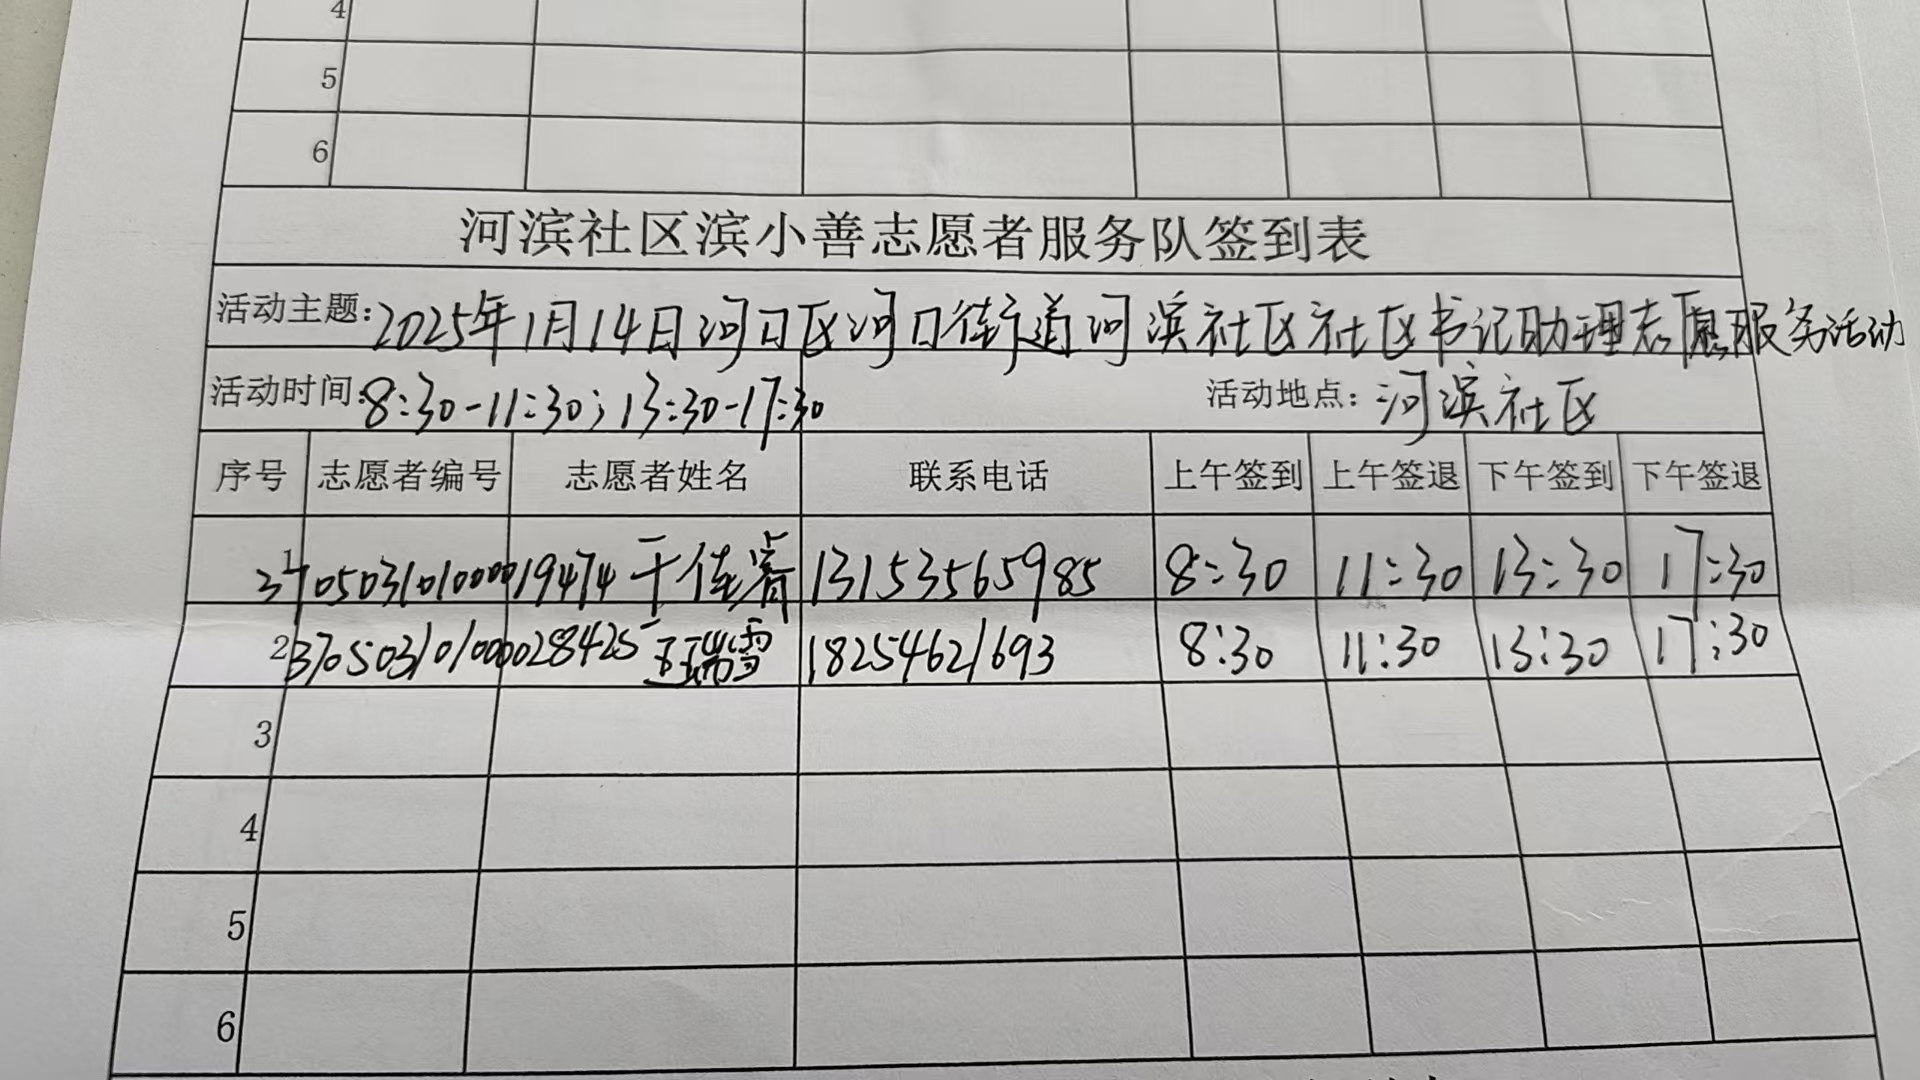 4
5
6
河滨社区滨小善志愿者服务队签到表
活动主题：2025年1月14日河口区河口街道河滨社区社区书记助理志愿服务活动
活动时间：8:30-11:30；13:30-17:30 活动地点：河滨社区
序号 志愿者编号 志愿者姓名 联系电话 上午签到 上午签退 下午签到 下午签退
1 370503101000019474 于佳睿 13153565985 8:30 11:30 13:30 17:30
2 370503101000028425 王瑞雪 18254621693 8:30 11:30 13:30 17:30
3
4
5
6